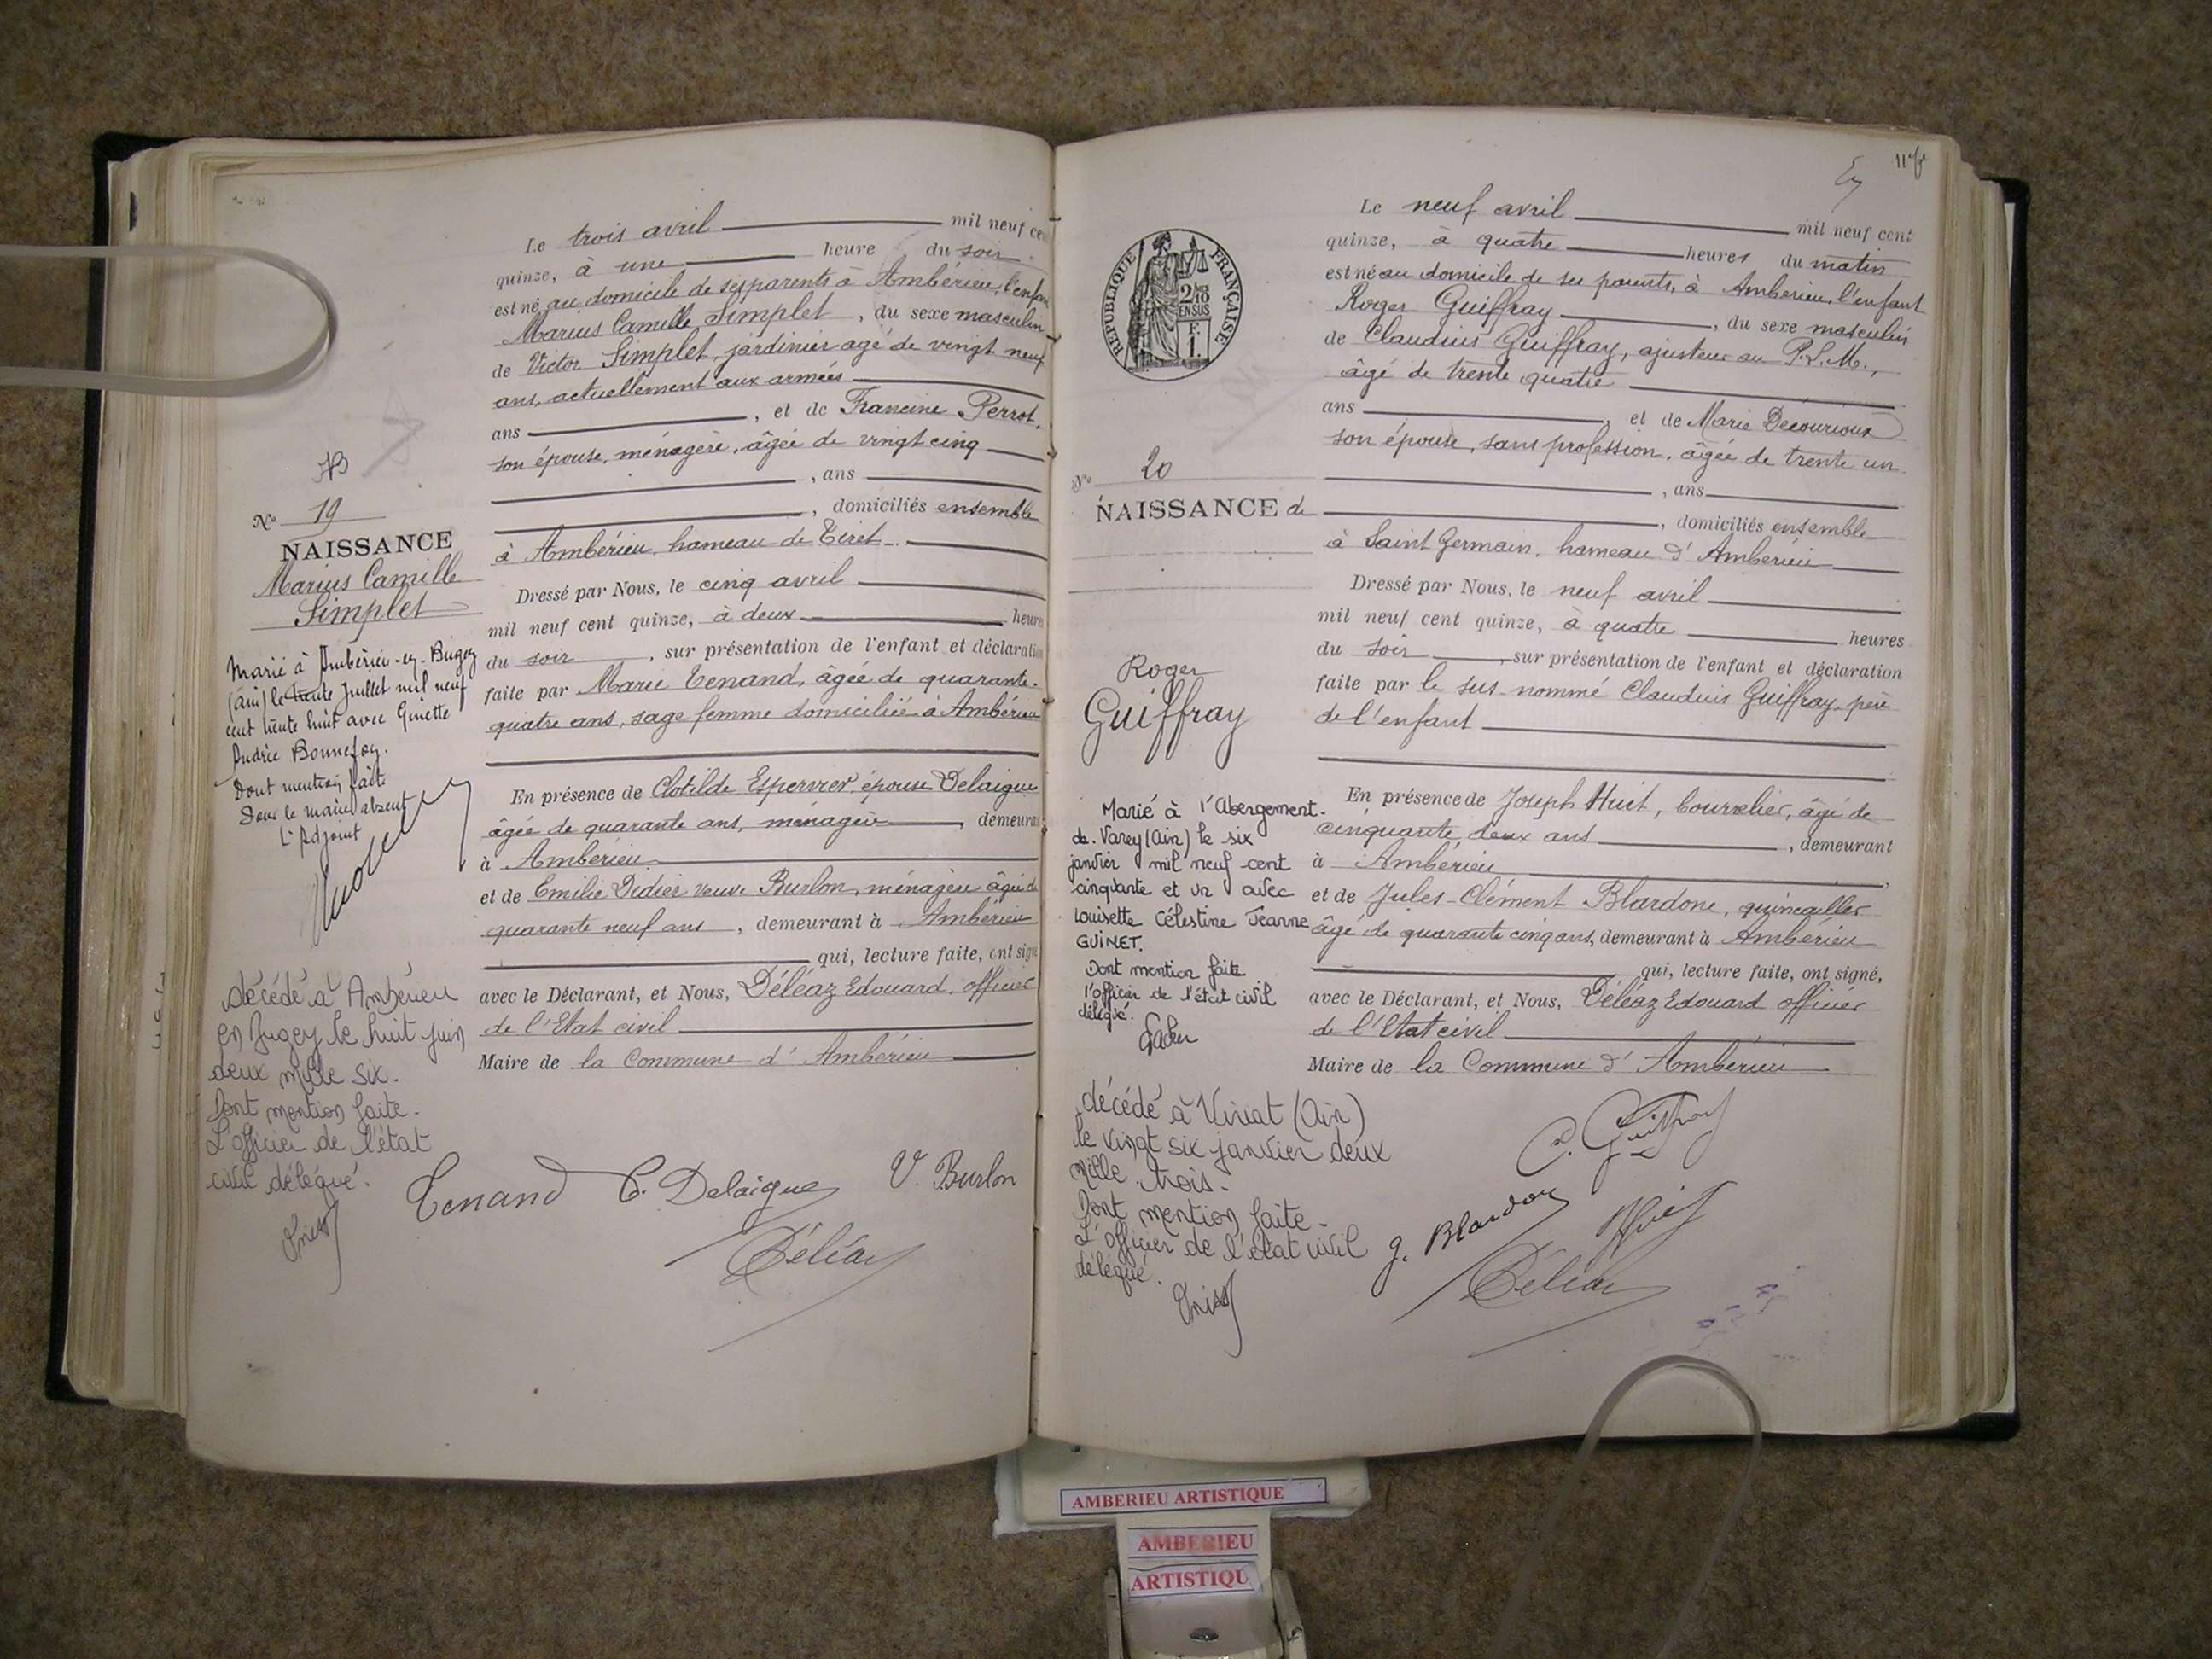 Le trois avril mil neuf cen
quinze, à une heure du soir
est né au domicile de ses parents à Ambérieu, l'enfan
Marius Camille Simplet, du sexe masculin
de Victor Simplet, jardinier agé de vingt neuf
ans, actuellement aux armées
ans, et de Francine Perrot,
son épouse, ménagère, âgée de vingt cinq
, ans
, domiciliés ensemble
à Ambérieu, hameau de Tiret
Dressé par Nous, le cinq avril
mil neuf cent quinze, à deux heures
du soir, sur présentation de l'enfant et déclaration
faite par Marie Tenand, âgée de quarante-
quatre ans, sage femme domiciliée à Ambérieu
En présence de Clotilde Espervier, épouse Delaigue
âgée de quarante ans, ménagère, demeuran
à Ambérieu
et de Emilie Didier veuve Burlon, ménagère âgée de
quarante neuf ans, demeurant à Ambérieu
qui, lecture faite, ont signé
avec le Déclarant, et Nous, Déléaz Edouard, officier
de l'Etat civil
Maire de la Commune d'Ambérieu
N° 19
NAISSANCE
Marius Camille
Simplet
Marié à Ambérieu-en-Bugey
(Ain) le trente Juillet mil neuf
cent trente huit avec Ginette
Andrée Bonnefoy.
Dont mention faite
Pour le maire absent
L'Adjoint
décédé à Ambérieu
en Bugey le huit juin
deux mille six.
Dont mention faite.
L'officier de l'état
civil délégué.
Tenand C. Delaigue V. Burlon
Déléaz
Le neuf avril mil neuf cent
quinze, à quatre heures du matin
est né au domicile de ses parents, à Ambérieu, l'enfant
Roger Guiffray, du sexe masculin
de Claudius Guiffray, ajusteur au P.L.M.,
âgé de trente quatre
ans, et de Marie Decourioux
son épouse, sans profession, âgée de trente un
, ans
, domiciliés ensemble
à Saint Germain, hameau d'Ambérieu
Dressé par Nous, le neuf avril
mil neuf cent quinze, à quatre heures
du soir, sur présentation de l'enfant et déclaration
faite par le sus-nommé Claudius Guiffray, père
de l'enfant
En présence de Joseph Huit, bourrelier, âgé de
cinquante deux ans, demeurant
à Ambérieu
et de Jules-Clément Blardone, quincailler
âgé de quarante cinq ans, demeurant à Ambérieu
qui, lecture faite, ont signé,
avec le Déclarant, et Nous, Déléaz Edouard officier
de l'Etat civil
Maire de la Commune d'Ambérieu
RÉPUBLIQUE FRANÇAISE
2/10
EN SUS
F.
1.
N° 20
NAISSANCE de
Roger
Guiffray
Marié à l'Abergement-
de-Varey (Ain) le six
janvier mil neuf cent
cinquante et un avec
Louisette Célestine Jeanne
GUINET.
Dont mention faite
l'officier de l'état civil
délégué.
décédé à Viriat (Ain)
le vingt six janvier deux
mille trois.
Dont mention faite.
L'officier de l'état civil
délégué.
C. Guiffray
J. Blardone Huit
Déléaz
AMBERIEU ARTISTIQUE
AMBERIEU
ARTISTIQU